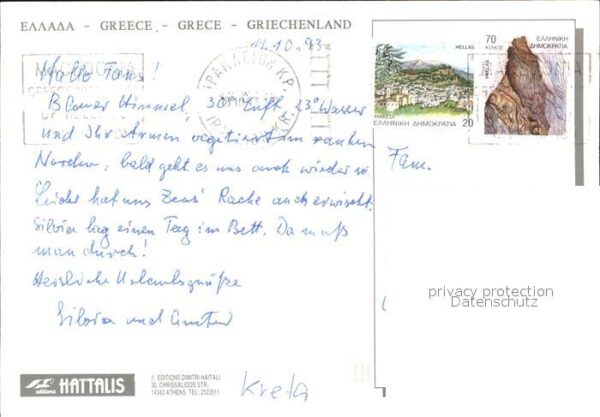 ΕΛΛΑΔΑ - GREECE - GRECE - GRIECHENLAND
11.10.93
Hallo Fans!
Blauer Himmel, 30° Luft, 23° Wasser
und Ihr Armen vegetiert im rauhen
Norden, bald geht es uns auch wieder so
Leider hat uns Zeus' Rache auch erwischt.
Silvia lag einen Tag im Bett. Da muß
man durch!
Herzliche Urlaubsgrüße
Silvia und
Kreta
HELLAS
ΕΛΛΗΝΙΚΗ ΔΗΜΟΚΡΑΤΙΑ 20
70
ΚΙΛΚΙΣ
HELLAS
ΕΛΛΗΝΙΚΗ
ΔΗΜΟΚΡΑΤΙΑ
ΗΡΑΚΛΕΙΟΝ ΚΡ.
Fam.
privacy protection
Datenschutz
editions
HATTALIS
EDITIONS DIMITRI HAITALI
30, CHRISSALIDOS STR.
14343 ATHENS, TEL. 2523511